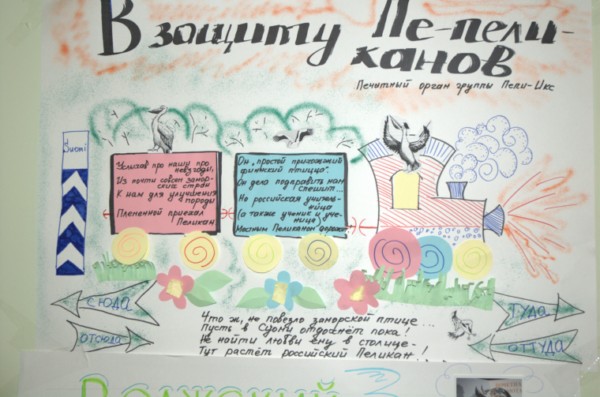 В защиту Пе-пели-
канов
Печатный орган группы Пели-Икс
Suomi
Услыхав про нашу про
невзгоду,
Из почти совсем замор-
ских стран
К нам для улучшения
породы
Племенной приехал
Пеликан
Он "простой прихожий
финский птицца".
Он дела подправить нам
спешит...
Но российская учитель-
ница
(а также ученик и уче-
ница)
Местным Пеликаном дорожит
СЮДА
ОТСЮДА
ТУДА
ОТТУДА
Что ж, не повезло заморской птице...
Пусть в Суоми отдохнёт пока!
Не найти любви ему в столице-
Тут растёт российский Пеликан!
Волжский